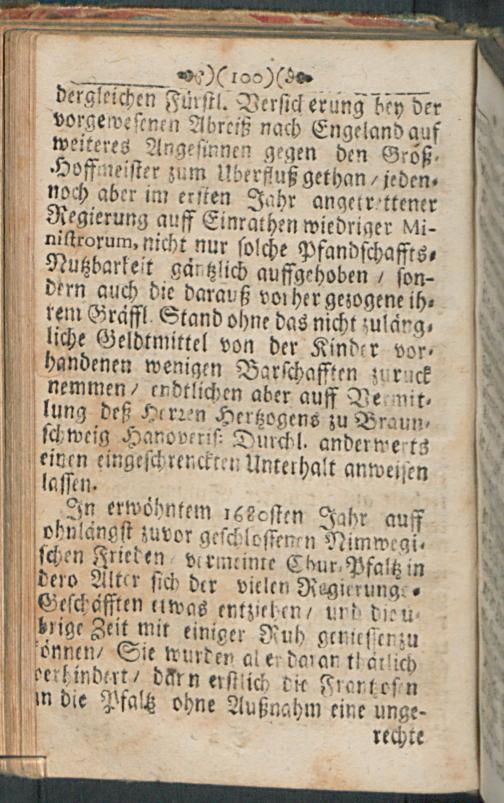 )(100)(
dergleichen Fürstl. Versicherung bey der
vorgewesenen Abreiß nach Engeland auf
weiteres Angesinnen gegen den Groß-
Hoffmeister zum Uberfluß gethan / jeden-
noch aber im ersten Jahr angetrettener
Regierung auff Einrathen wiedriger Mi-
nistrorum, nicht nur solche Pfandschaffts-
Nutzbarkeit gäntzlich auffgehoben / son-
dern auch die darauß vorher gezogene ih-
rem Gräffl. Stand ohne das nicht zuläng-
liche Geldtmittel von der Kinder vor-
handenen wenigen Barschafften zuruck
nemmen / endtlichen aber auff Vermit-
lung deß Herren Hertzogens zu Braun-
schweig Hanoveris: Durchl. anderwerts
einen eingeschrenckten Unterhalt anweisen
lassen.
In erwöhntem 1680sten Jahr auff
ohnlängst zuvor geschlossenen Nimwegi-
schen Frieden / vermeinte Chur-Pfaltz in
dero Alter sich der vielen Regierungs-
Geschäfften etwas entziehen / und die ü-
brige Zeit mit einiger Ruh geniessen zu
können / Sie wurden aber daran thätlich
verhindert / dann erstlich die Frantzosen
in die Pfaltz ohne Außnahm eine unge-
rechte